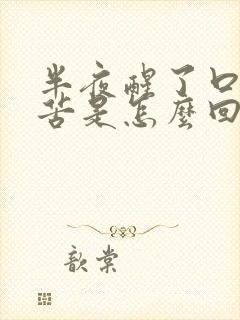 半夜醒了口
苦是怎麼回
歆棠